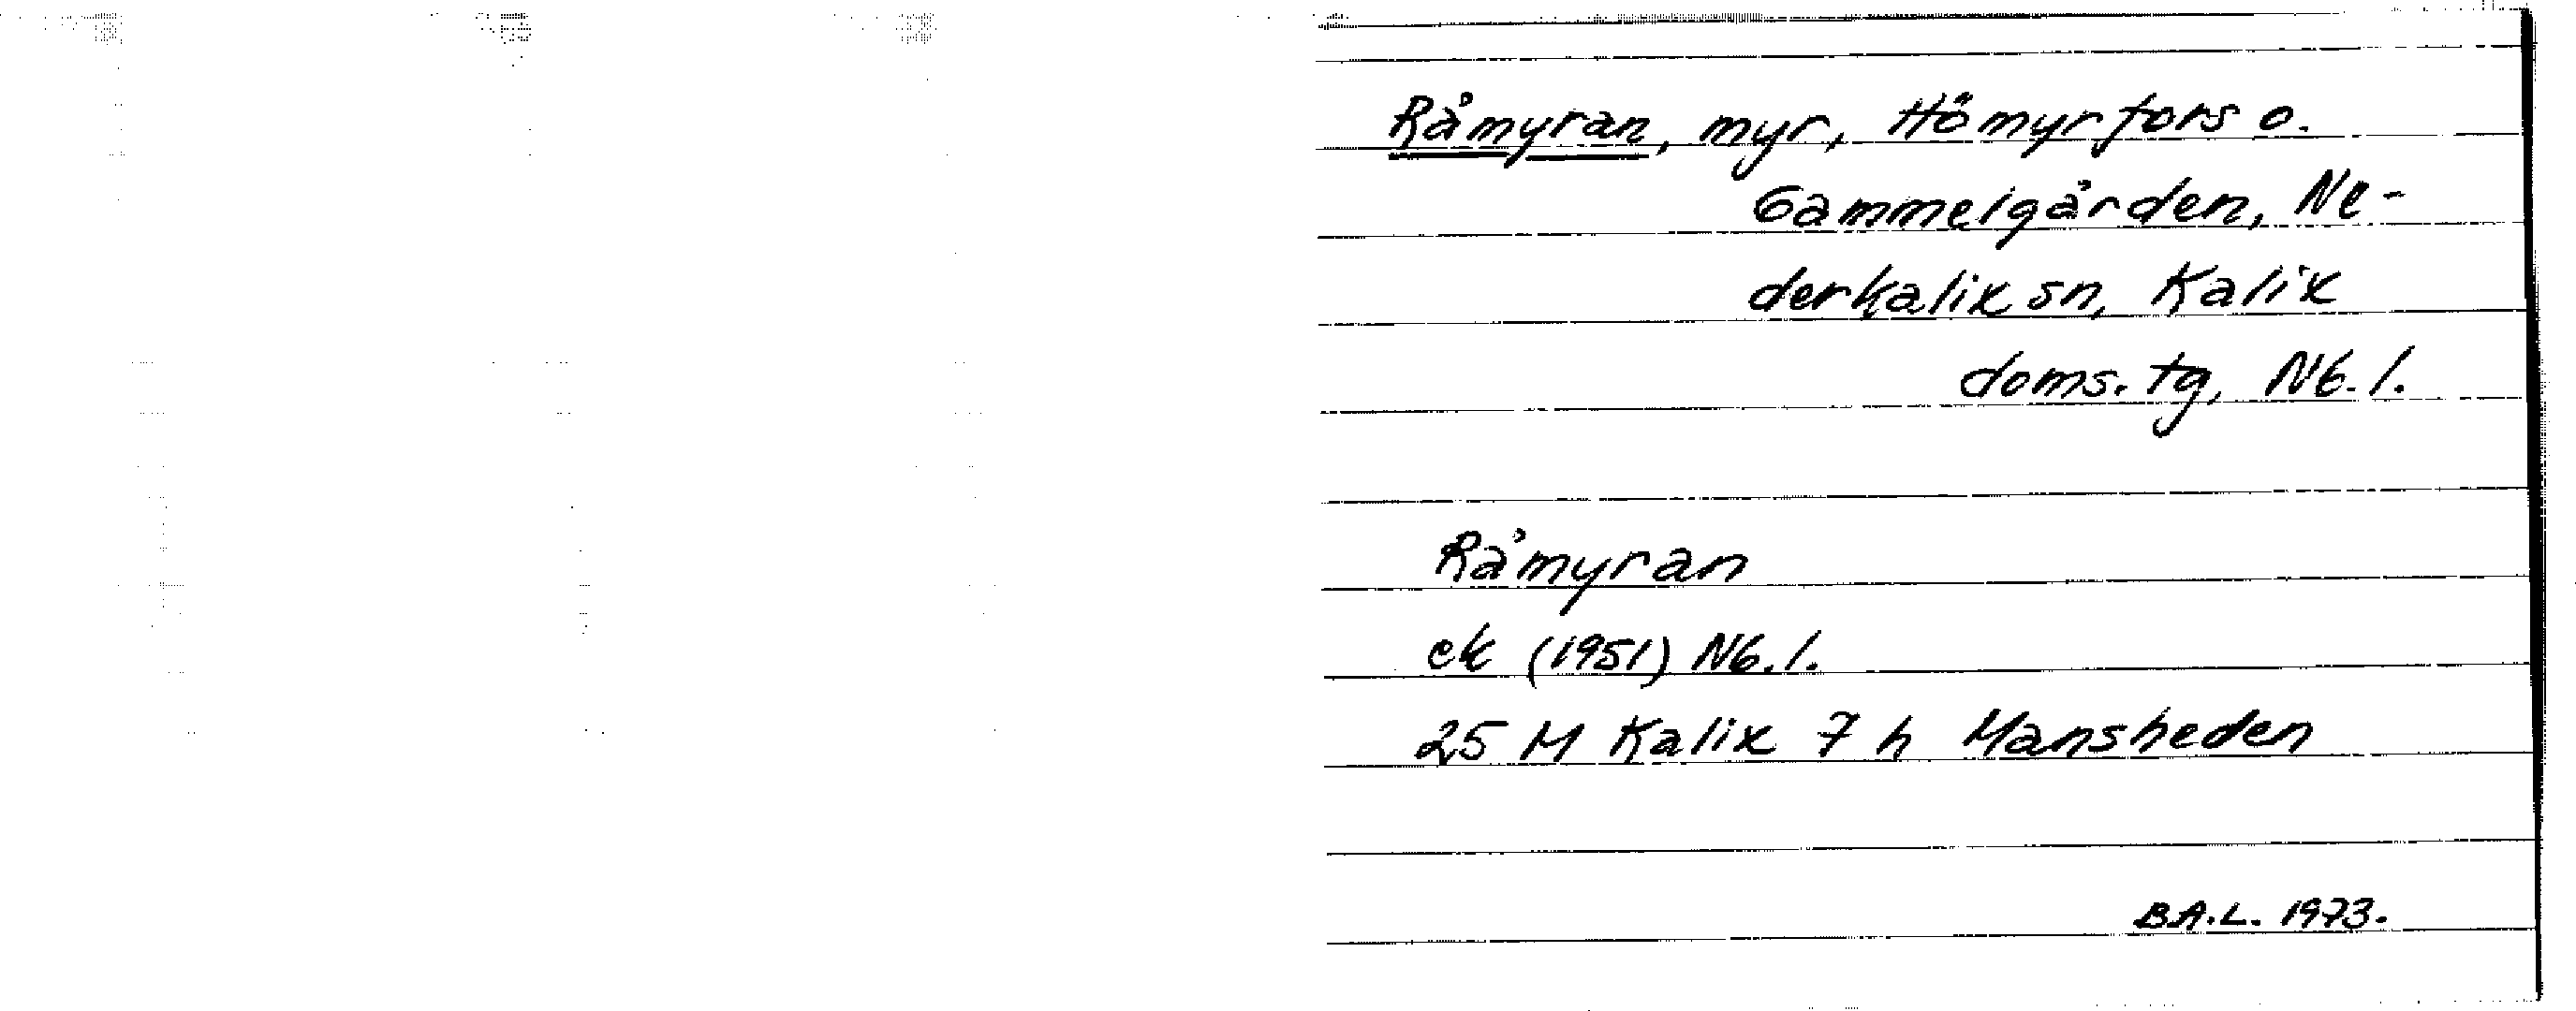 Råmyran, myr, Hömyrfors o.
Gammelgården, Ne-
derkalix sn, Kalix
doms. tg, Nb. l.
Råmyran
ek (1951) Nb. l.
25 M Kalix 7 h Mansheden
B.A.L. 1973.